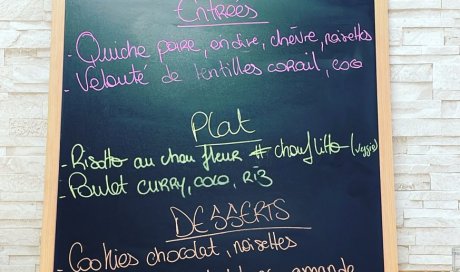 Entrées
- Quiche poire, endive, chèvre, noisettes
- Velouté de lentilles corail, coco
Plat
- Risotto au chou fleur (veggie)
- Poulet CURRY, COCO, RIZ
DESSERTS
- Cookies chocolat, noisettes
amande